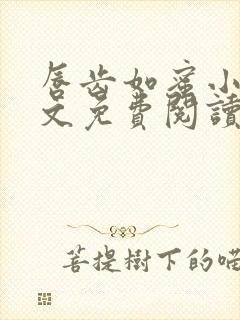 唇齿如蜜小
文免費閱讀
菩提樹下的喵